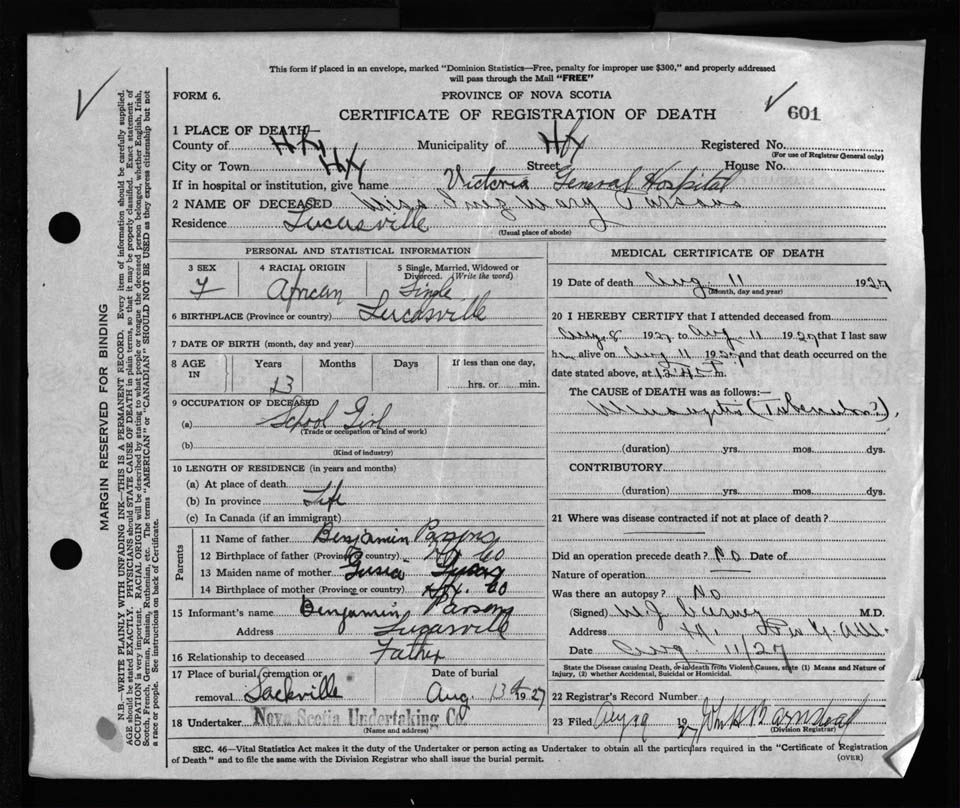 This form if placed in an envelope, marked "Dominion Statistics—Free, penalty for improper use $300," and properly addressed
will pass through the Mail "FREE"
FORM 6.
PROVINCE OF NOVA SCOTIA
CERTIFICATE OF REGISTRATION OF DEATH
601
1 PLACE OF DEATH—
County of Hfx Municipality of Hfx Registered No.
(For use of Registrar General only)
City or Town Hfx Street House No.
If in hospital or institution, give name Victoria General Hospital
2 NAME OF DECEASED Miss Inez Mary Parsons
Residence Lucasville
(Usual place of abode)
PERSONAL AND STATISTICAL INFORMATION
3 SEX F
4 RACIAL ORIGIN African
5 Single, Married, Widowed or Divorced. (Write the word) Single
6 BIRTHPLACE (Province or country) Lucasville
7 DATE OF BIRTH (month, day and year)
8 AGE IN Years 13 Months Days If less than one day, hrs. or min.
9 OCCUPATION OF DECEASED
(a) School Girl
(Trade or occupation or kind of work)
(b)
(Kind of industry)
10 LENGTH OF RESIDENCE (in years and months)
(a) At place of death
(b) In province Life
(c) In Canada (if an immigrant)
Parents
11 Name of father Benjamin Parsons
12 Birthplace of father (Province or country) Hfx Co
13 Maiden name of mother Lucas
14 Birthplace of mother (Province or country) Hfx. Co
15 Informant's name Benjamin Parsons
Address Lucasville
16 Relationship to deceased Father
17 Place of burial, cremation or removal Sackville
Date of burial Aug. 13th 1927
18 Undertaker Nova Scotia Undertaking Co
(Name and address)
MEDICAL CERTIFICATE OF DEATH
19 Date of death Aug 11 1927
(Month, day and year)
20 I HEREBY CERTIFY that I attended deceased from
Aug 8 1927 to Aug 11 1927 that I last saw
h alive on Aug 11 1927 and that death occurred on
date stated above, at
The CAUSE OF DEATH was as follows:—
Meningitis (Tuberculous)
(duration) yrs. mos. dys.
CONTRIBUTORY
(duration) yrs. mos. dys.
21 Where was disease contracted if not at place of death?
Did an operation precede death? No Date of
Nature of operation
Was there an autopsy? No
(Signed) M.D.
Address
Aug 11/27
State the Disease causing Death, or in death from Violent Causes, state (1) Means and Nature of
Injury, (2) whether Accidental, Suicidal or Homicidal.
22 Registrar's Record Number
23 Filed Aug 19 1927
(Division Registrar)
SEC. 46—Vital Statistics Act makes it the duty of the Undertaker or person acting as Undertaker to obtain all the particulars required in the "Certificate of Registration
of Death" and to file the same with the Division Registrar who shall issue the burial permit.
(OVER)
MARGIN RESERVED FOR BINDING
N.B.—WRITE PLAINLY WITH UNFADING INK—THIS IS A PERMANENT RECORD. Every item of information should be carefully supplied.
AGE should be stated EXACTLY. PHYSICIANS should STATE CAUSE OF DEATH in plain terms, so that it may be properly classified. Exact statement of
OCCUPATION is very important. RACIAL ORIGIN will be described by stating to what people or tongue the deceased person belonged, whether English, Irish,
Scotch, French, German, Russian, Ruthenian, etc. The terms "AMERICAN" or "CANADIAN" SHOULD NOT BE USED as they express citizenship but not
a race or people. See instructions on back of Certificate.